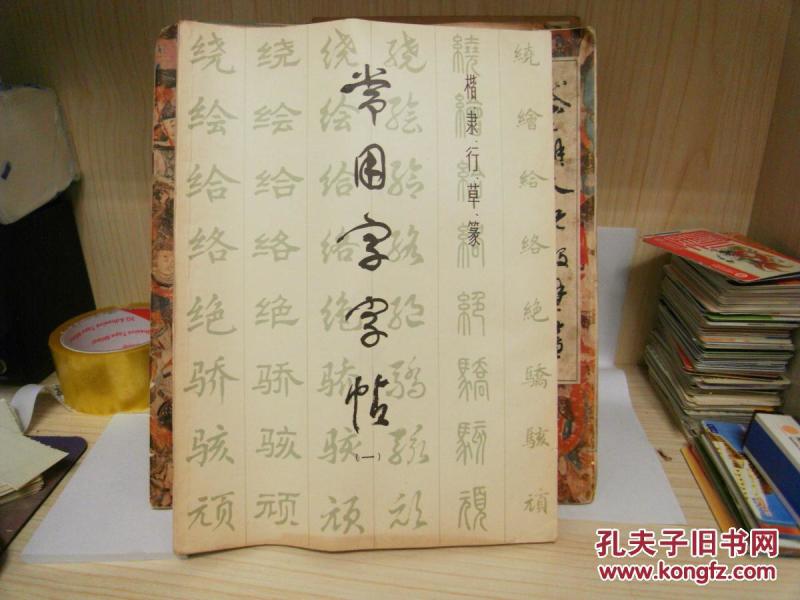 常用字字帖
(一)
楷·隶·行·草·篆
绕 绕 绕 繞 繞 繞
绘 绘 绘 繪 繪 繪
给 给 给 給 給 給
络 络 络 絡 絡 絡
绝 绝 绝 絕 絕 絕
骄 骄 骄 驕 驕 驕
骇 骇 骇 駭 駭 駭
顽 顽 顽 頑 頑 頑
孔夫子旧书网
www.kongfz.com